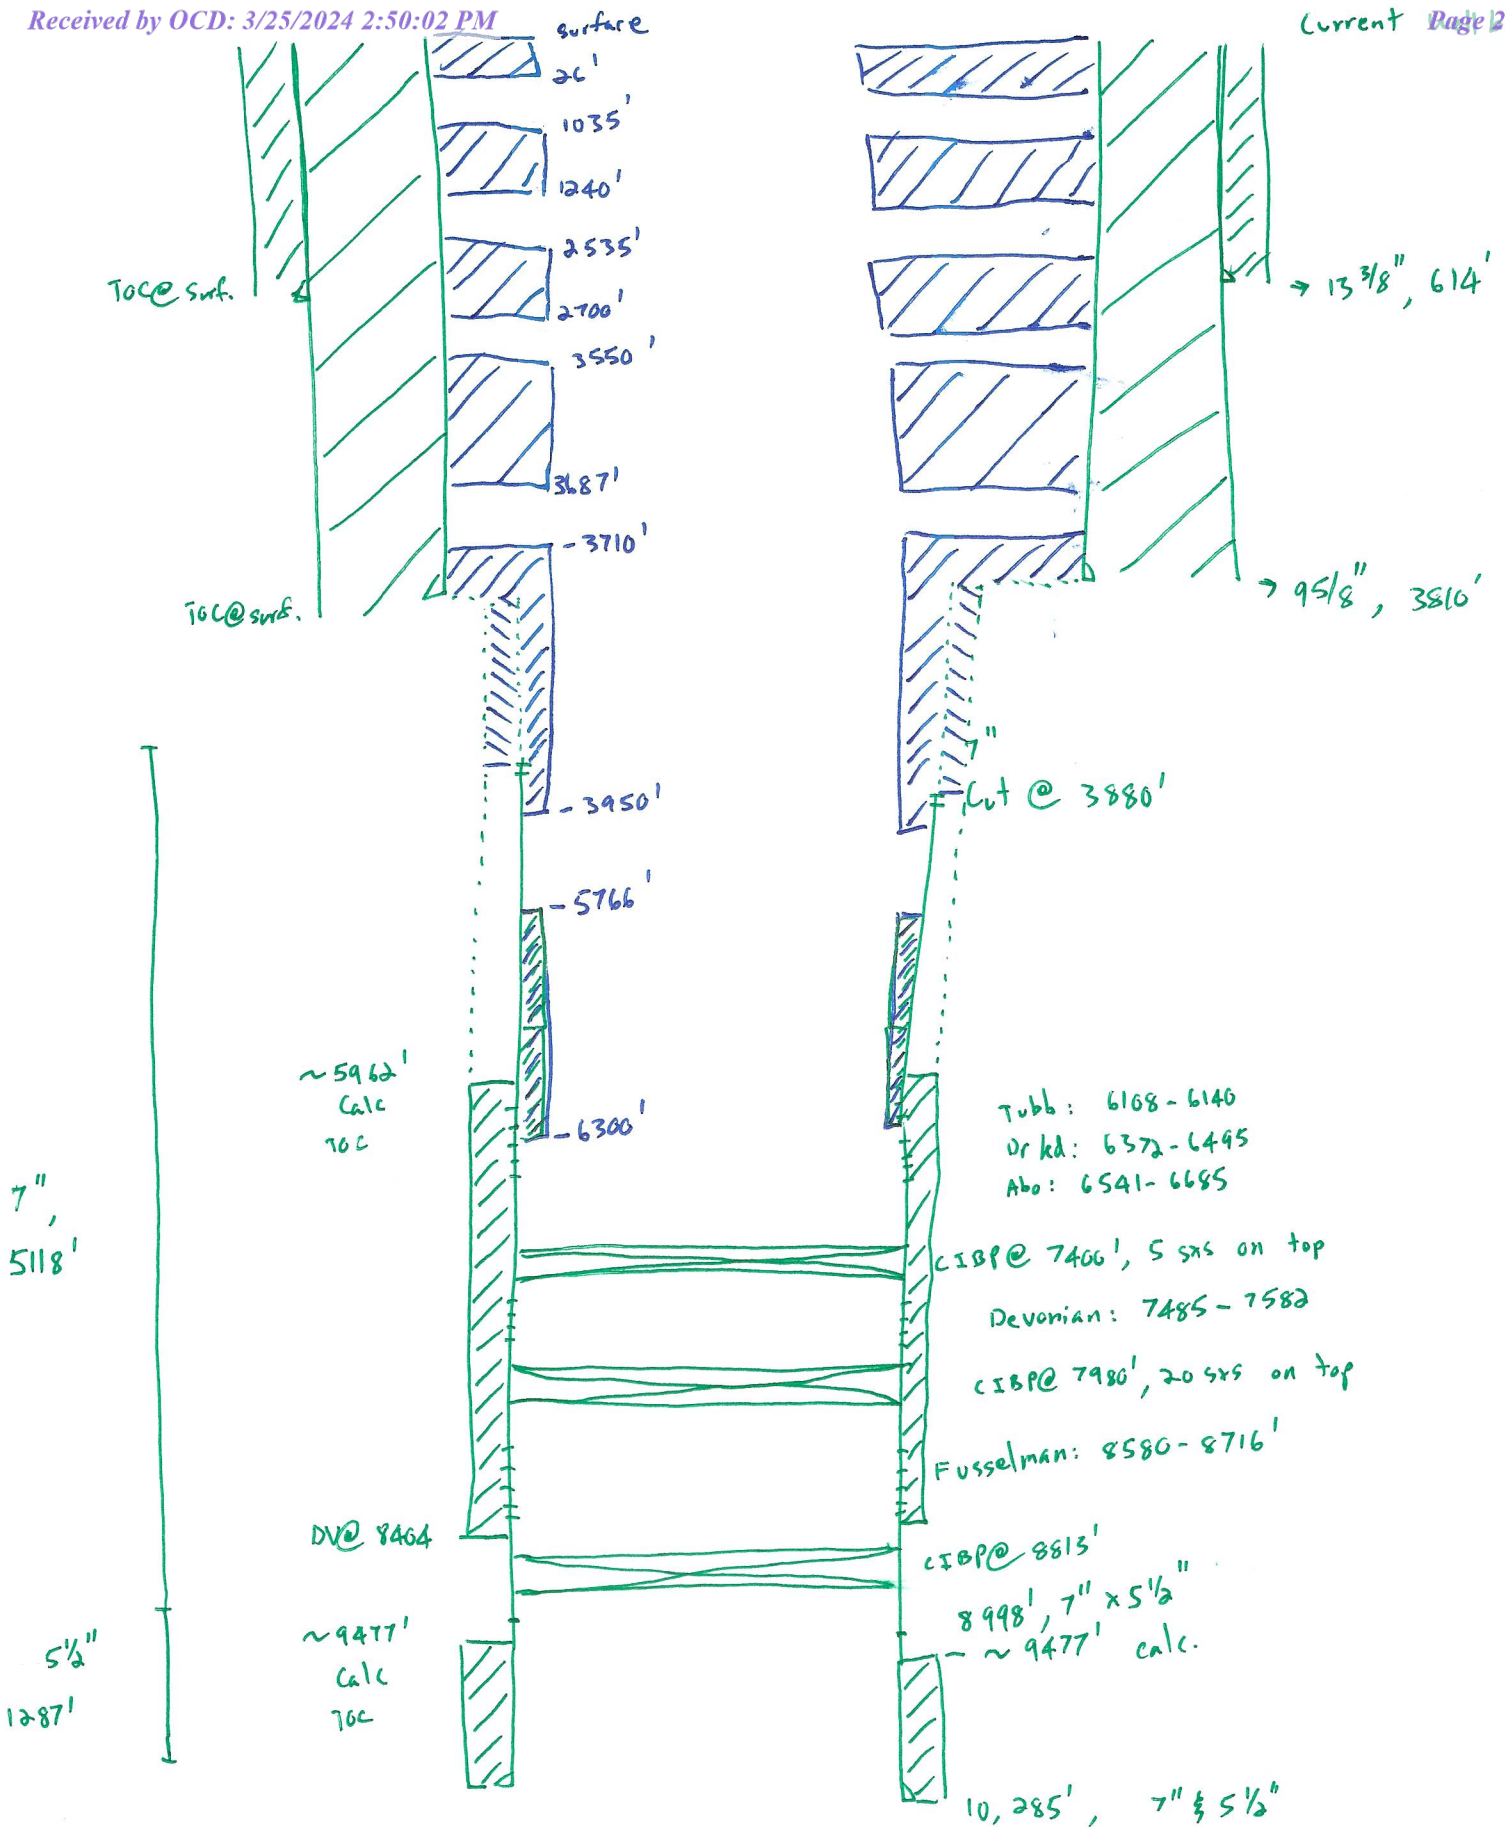 Received by OCD: 3/25/2024 2:50:02 PM
Current
Page 2
surface
26'
1035'
1240'
2535'
TOC@ surf.
→ 13 3/8", 614'
2700'
3550'
3687'
- 3710'
TOC@surf.
→ 9 5/8", 3810'
7"
Cut @ 3880'
- 3950'
- 5766'
~5962'
Calc
TOC
- 6300'
Tubb: 6108-6140
Drkd: 6372-6495
Abo: 6541-6685
7",
5118'
CIBP@ 7400', 5 sxs on top
Devonian: 7485-7582
CIBP@ 7980', 20 sxs on top
Fusselman: 8580-8716'
DV@ 8404
CIBP@ 8813'
8998', 7" x 5 1/2"
~9477'
Calc
TOC
- ~ 9477' calc.
5 1/2"
1287'
10,285', 7" & 5 1/2"